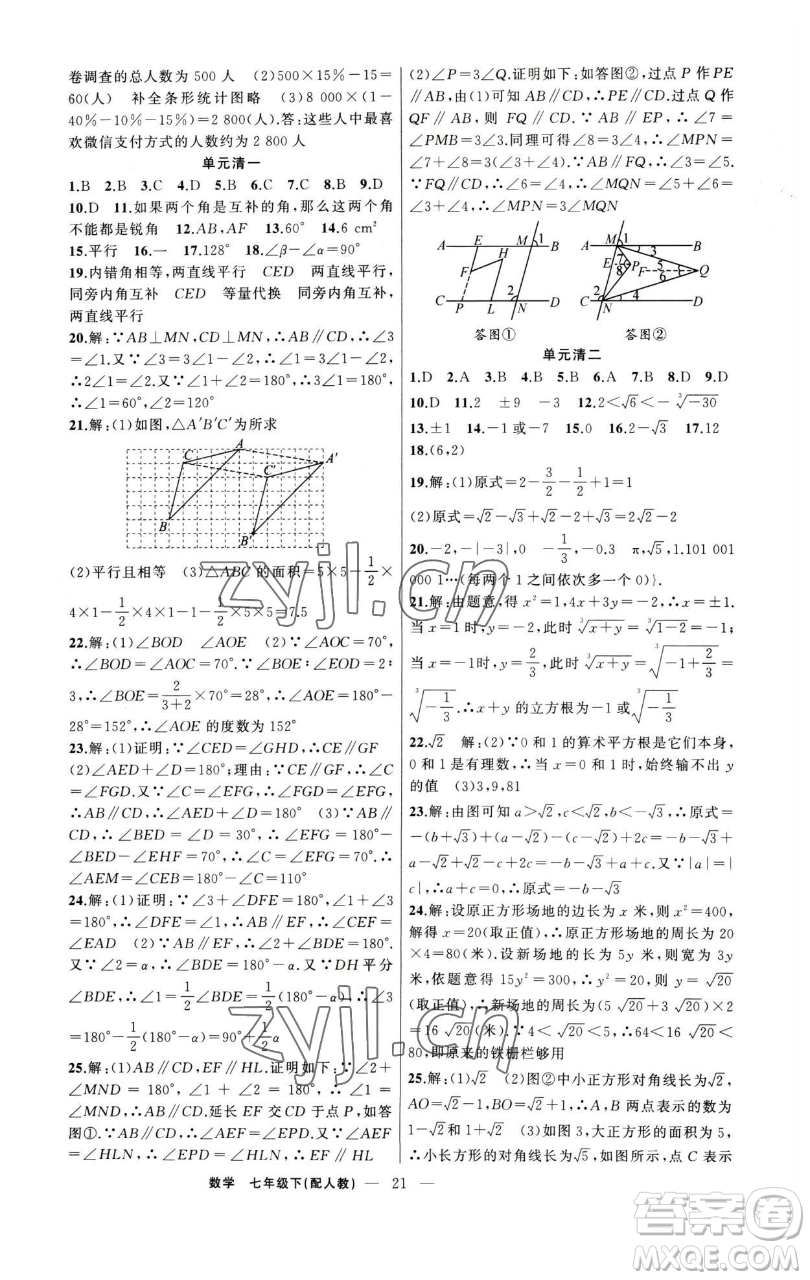 卷调查的总人数为 500 人　(2)500×15%－15＝
60(人)　补全条形统计图略　(3)8 000×(1－
40%－10%－15%)＝2 800(人).答:这些人中最喜
欢微信支付方式的人数约为 2 800 人
单元清一
1.B　2.B　3.C　4.D　5.D　6.C　7.B　8.B　9.D
10.D　11.如果两个角是互补的角,那么这两个角
不能都是锐角　12.AB,AF　13.60°　14.6 cm²
15.平行　16.一　17.128°　18.∠β－∠α＝90°
19.内错角相等,两直线平行　CED　两直线平行,
同旁内角互补　CED　等量代换　同旁内角互补,
两直线平行
20.解:∵AB⊥MN,CD⊥MN,∴AB∥CD,∴∠3
＝∠1.又∵∠3＝∠2,∴∠2＝∠1.又∵∠2＝2∠1,
∴2∠1＝∠2.又∵∠1＋∠2＝180°,∴3∠1＝180°,
∴∠1＝60°,∠2＝120°
21.解:(1)如图,△A′B′C′为所求
A
C
A′
C′
B
B′
(2)平行且相等　(3)△ABC 的面积＝5×5－1/2×
4×1－1/2×4×1－1－1/2×5×5＝7.5
22.解:(1)∠BOD　∠AOE　(2)∵∠AOC＝70°,
∴∠BOD＝∠AOC＝70°.∵∠BOE∶∠EOD＝2∶
3,∴∠BOE＝2/(3＋2)×70°＝28°,∴∠AOE＝180°－
28°＝152°,∴∠AOE 的度数为 152°
23.解:(1)证明:∵∠CED＝∠GHD,∴CE∥GF
(2)∠AED＋∠D＝180°.证明:∵CE∥GF,∴∠C
＝∠FGD.又∵∠C＝∠EFG,∴∠FGD＝∠EFG,
∴AB∥CD,∴∠AED＋∠D＝180°　(3)∵AB∥
CD,∴∠BED＝∠D＝30°,∴∠EFG＝180°－
∠BED－∠EHF＝70°,∴∠CEB＝∠EFG＝70°,∴
∠AEM＝∠CEB＝180°－∠CEB＝110°
24.解:(1)证明:∵∠1＋∠DFE＝180°,∠1＋∠2＝
180°,∴∠DFE＝∠2,∴AB∥EF,∴∠CEF＝
∠EAD　(2)∵AB∥EF,∴∠2＋∠BDE＝180°.
又∵∠2＝α,∴∠BDE＝180°－α.又∵DH平分
∠BDE,∴∠1＝1/2∠BDE＝1/2(180°－α),∴∠3
＝180°－1/2(180°－α)＝90°＋1/2α
25.解:(1)AB∥CD,EF∥HL.证明如下:∵∠2＋
∠MND＝180°,∠1＋∠2＝180°,∴∠1＝
∠MND,∴AB∥CD.延长 EF 交 CD 于点 P,如答
图①.∵AB∥CD,∴∠AEF＝∠EPD.又∵∠AEF
＝∠HLN,∴∠EPD＝∠HLN,∴EF∥HL
(2)∠P＝3∠Q.证明如下:如答图②,过点 P 作 PE
∥AB,由(1)可知 AB∥CD,∴PE∥CD.过点 Q 作
QF∥AB,则 FQ∥CD.又∵PE∥AB,∴∠7＝
∠PMB＝3∠3.同理可得∠8＝3∠4,∴∠MPN＝
∠7＋∠8＝3∠3＋3∠4.∵AB∥FQ,∴∠3＝∠5.
∵FQ∥CD,∴∠4＝∠6,∴∠MQN＝∠5＋∠6＝
∠3＋∠4,∴∠MPN＝3∠MQN,即∠P＝3∠Q
A E M 1 B
F H
2
C P L N D
A M 1 3 B
E 7 P F 5 Q
8 6
2 4
C N D
答图①　答图②
单元清二
1.D　2.A　3.B　4.C　5.B　6.A　7.B　8.D　9.D
10.D　11.2　±9　－3　12.2＜√6＜－∛－30
13.±1　14.－1或－7　15.0　16.2－√3　17.12
18.(6,2)
19.解:(1)原式＝2－3/2－1/2＋1＝1
(2)原式＝√2－√3＋√2－2＋√3＝2√2－2
20.－2,－|－3|,0　0－1/3,－0.3　π,√5,1.101 001
000 1…(每两个 1 之间依次多一个 0)}.
21.解:由题意,得 x²＝1,4x＋3y＝2,∴x＝±1.
当 x＝1时,y＝－2/3,此时∛x＋y＝∛1－2/3＝∛1/3;
当 x＝－1时,y＝2,此时∛x＋y＝∛－1＋2＝1
22.√2　解:(2)∵0 和 1 的算术平方根是它们本身,
0 和 1 是有理数,∴当 x＝0 或 1 时,始终输不出 y
的值　(3)3,9,81
23.解:由图可知 a＞√2,c＜√2,b＜－√3,∴原式＝
－(b＋√3)＋(a－√2)－(c－√2)＋2c＝－b－√3＋
a－√2－c＋√2＋2c＝－b－√3＋a＋c.又∵|a|＝|
c|,∴a＋c＝0,∴原式＝－b－√3
24.解:设原正方形场地的边长为 x 米,则 x²＝400,
解得 x＝20(取正值),∴原正方形场地的周长为 20
×4＝80(米).设新场地的长为 5y 米,则宽为 3y
米,依题意得 15y²＝300,∴y²＝20,∴y＝√20
(取正值),∴新场地的周长为(5√20＋3√20)×2
＝16√20(米).∵4＜√20＜5,∴64＜16√20＜
80,即原来的铁栅栏够用
25.解:(1)√2　(2)图②中小正方形对角线长为√2,
AO＝√2－1,BO＝√2＋1,∴A,B 两点表示的数为
1－√2和1＋√2　(3)如图 3,大正方形的面积为 5,
∴小长方形的对角线长为√5,如图所示,点 C 表示
数学　七年级下(配人教)　— 21 —
zyjl.cn
zyjl.cn
答案卷
MXQE.COM